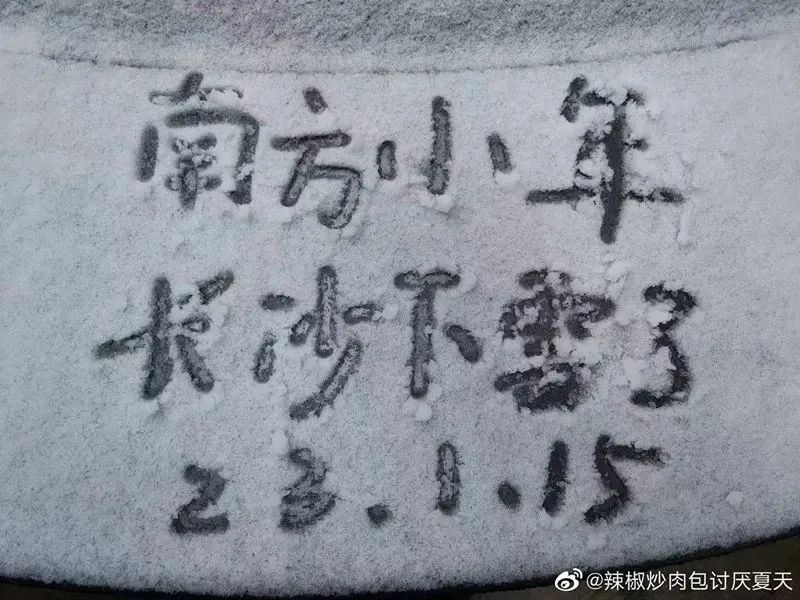 南方小年
长沙下雪了
23.1.15
@辣椒炒肉包讨厌夏天